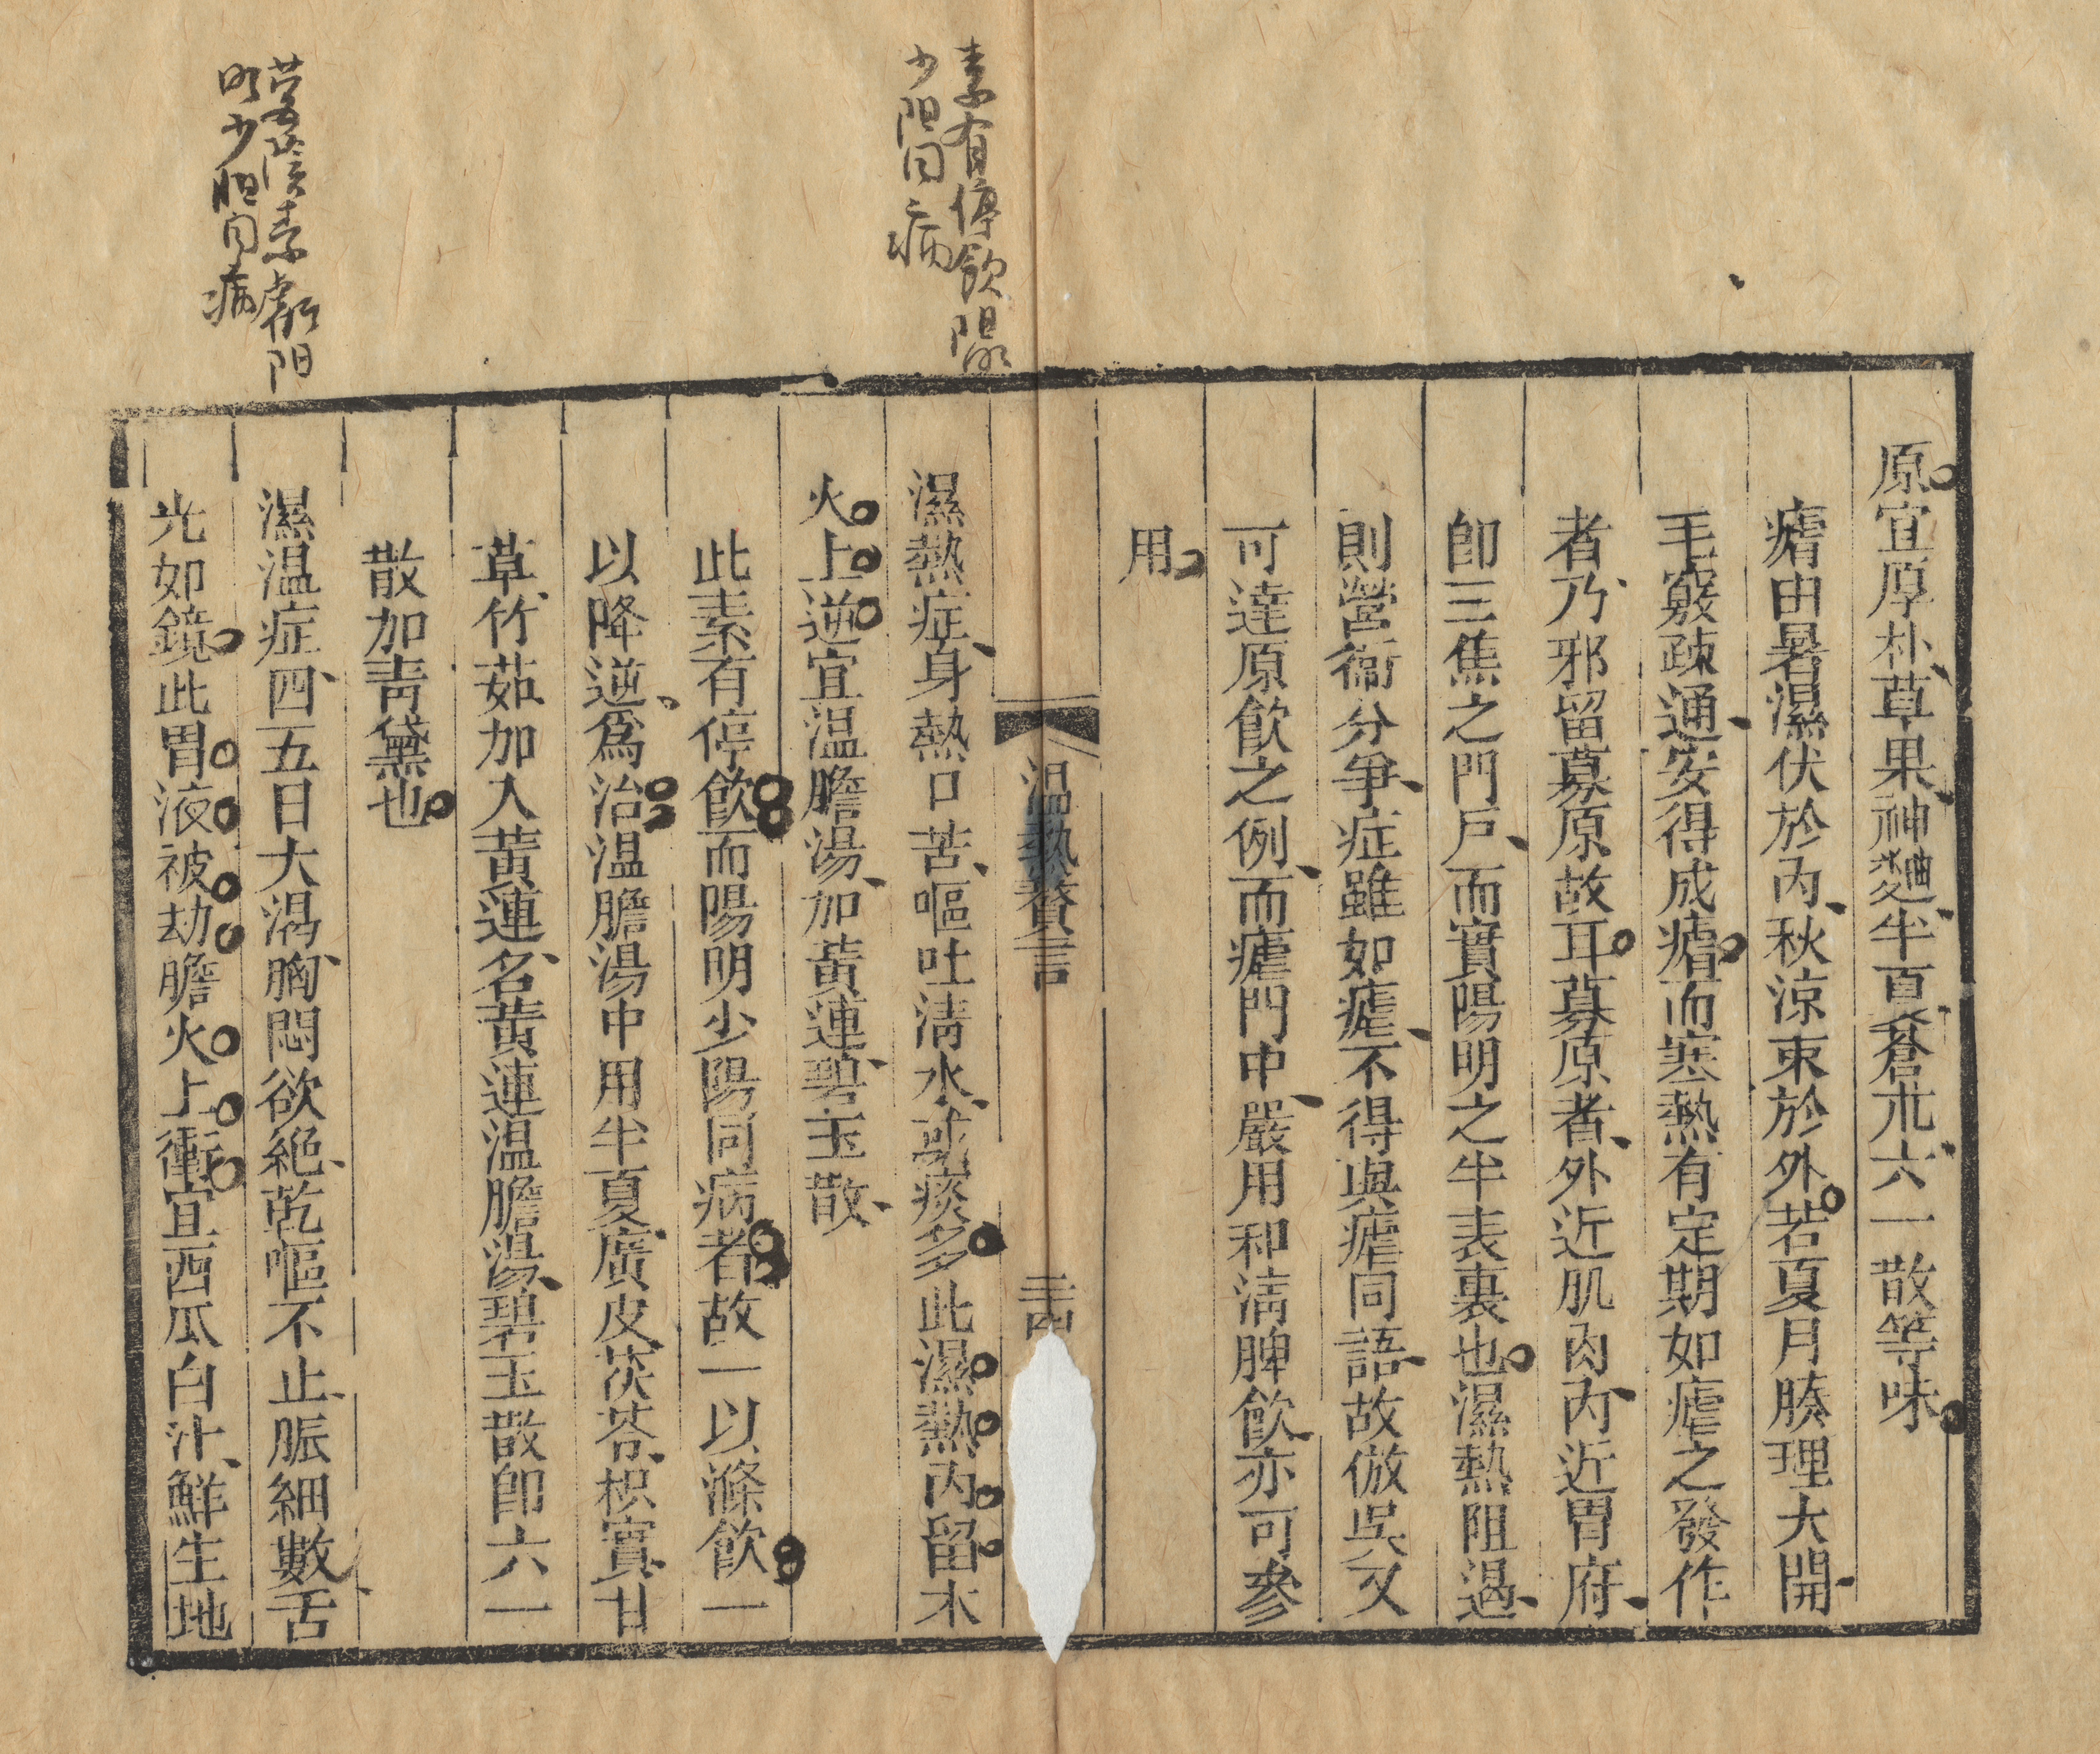 原宜厚朴草果神麯半夏蒼朮六一散等味
瘧由暑濕伏於內秋涼束於外若夏月腠理大開
毛竅疎通安得成瘧而寒熱有定期如瘧之發作
者乃邪留募原故耳募原者外近肌肉內近胃府
卽三焦之門戶而實陽明之半表裏也濕熱阻遏
則營衞分爭症雖如瘧不得與瘧同語故倣吳又
可達原飮之例而瘧門中嚴用和淸脾飮亦可參
用
温熱贅言
三四
濕熱症身熱口苦嘔吐淸水或痰多此濕熱內留木
火上逆宜温膽湯加黃連碧玉散
此素有停飮而陽明少陽同病者故一以滌飮一
以降逆爲治温膽湯中用半夏廣皮茯苓枳實甘
草竹茹加入黃連名黃連温膽湯碧玉散卽六一
散加靑黛也
濕温症四五日大渴胸悶欲絶乾嘔不止脈細數舌
光如鏡此胃液被劫膽火上衝宜西瓜白汁鮮生地
素有停飲陽明
少陽同病
營陰素虧陽
明少胆同病